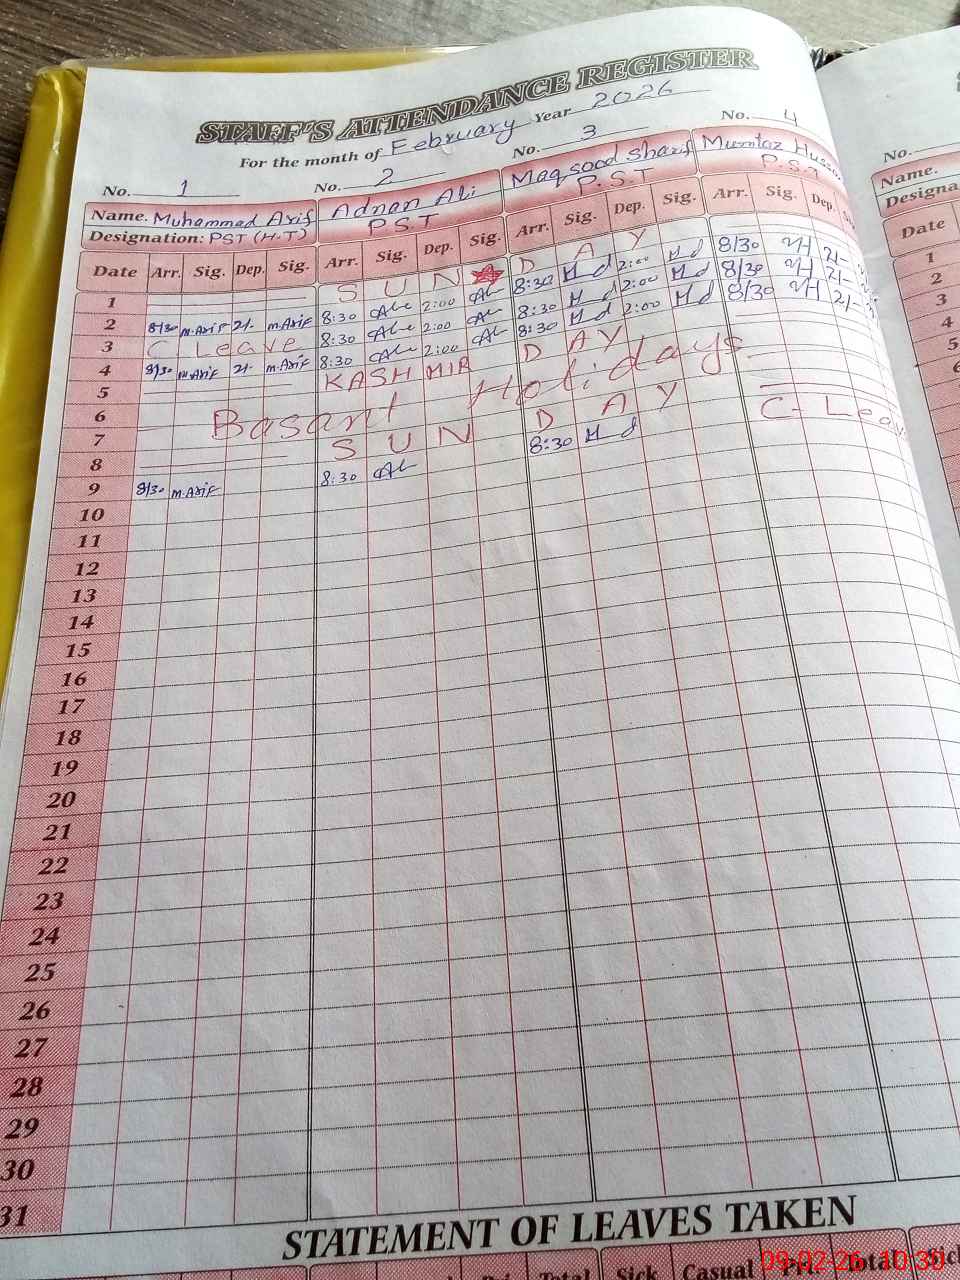 STAFF'S ATTENDANCE REGISTER
For the month of February Year 2026
No. 1 No. 2 No. 3 No. 4 No.
Name. Muhammad Arif Adnan Ali Maqsood Sharif Mumtaz Name.
Designation: PST (H.T) P.S.T P.S.T P.S.T Designa
Date Arr. Sig. Dep. Sig. Arr. Sig. Dep. Sig. Arr. Sig. Dep. Sig. Arr. Sig. Dep. Date
1 S U N D A Y 1
2 8/30 M.Arif 2/- M.Arif 8:30 2:00 8:30 M d 2:00 M d 8/30 MH 2/- 2
3 C Leave 8:30 2:00 8:30 M d 2:00 M d 8/30 MH 2/- 3
4 8/30 M.Arif 2/- M.Arif 8:30 2:00 8:30 M d 2:00 M d 8/30 MH 2/- 4
5 KASHMIR D A Y 5
6 Basant Holidays 6
7
8 S U N D A Y
9 8/30 M.Arif 8:30 8:30 M d C-Leav
10
11
12
13
14
15
16
17
18
19
20
21
22
23
24
25
26
27
28
29
30
31
STATEMENT OF LEAVES TAKEN
Total Sick Casual Total Sick
09-02-26 10:30